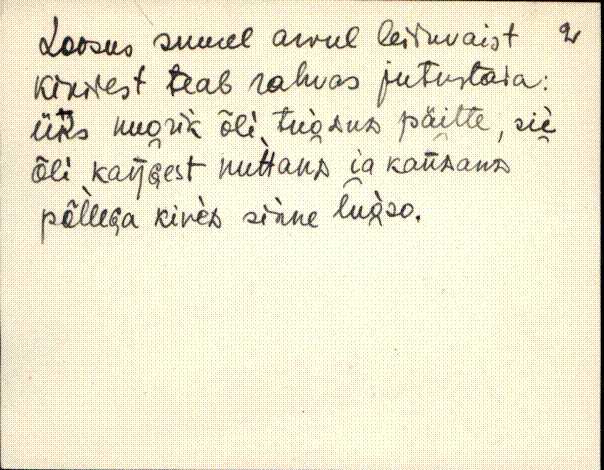 Loosus suurel arvul leiduvaist 2
kividest teab rahvas jutustada:
üks nuo̯rik õli tuo̯dud päitte, siè
õli kaŋgest nuttand ja kandand
põ̀llega kivèd sinne luo̯so.